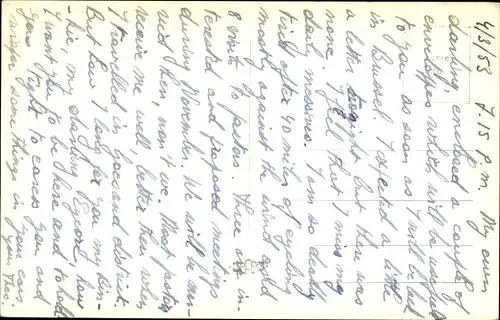 7.15 p.m. My own
darling, enclosed a couple of
envelopes which will be useful
to you as soon as I will be back
in Brussel. I expected a little
a letter tonight but there was
none. I feel that I miss my
daily missives. I am so deadly
tired after 40 miles of cycling
mostly against the wind, and
8 visits to pastors. Three are in-
terested and proposed meetings
during November. We will be mar-
ried then, won't we. Most pastors
receive me well, better then when
I travelled in Goes and district.
But how I long for you my
my darling how
I want you to be there and to hold
you tight to caress you and
whisper some things in your ears.
your Theo.